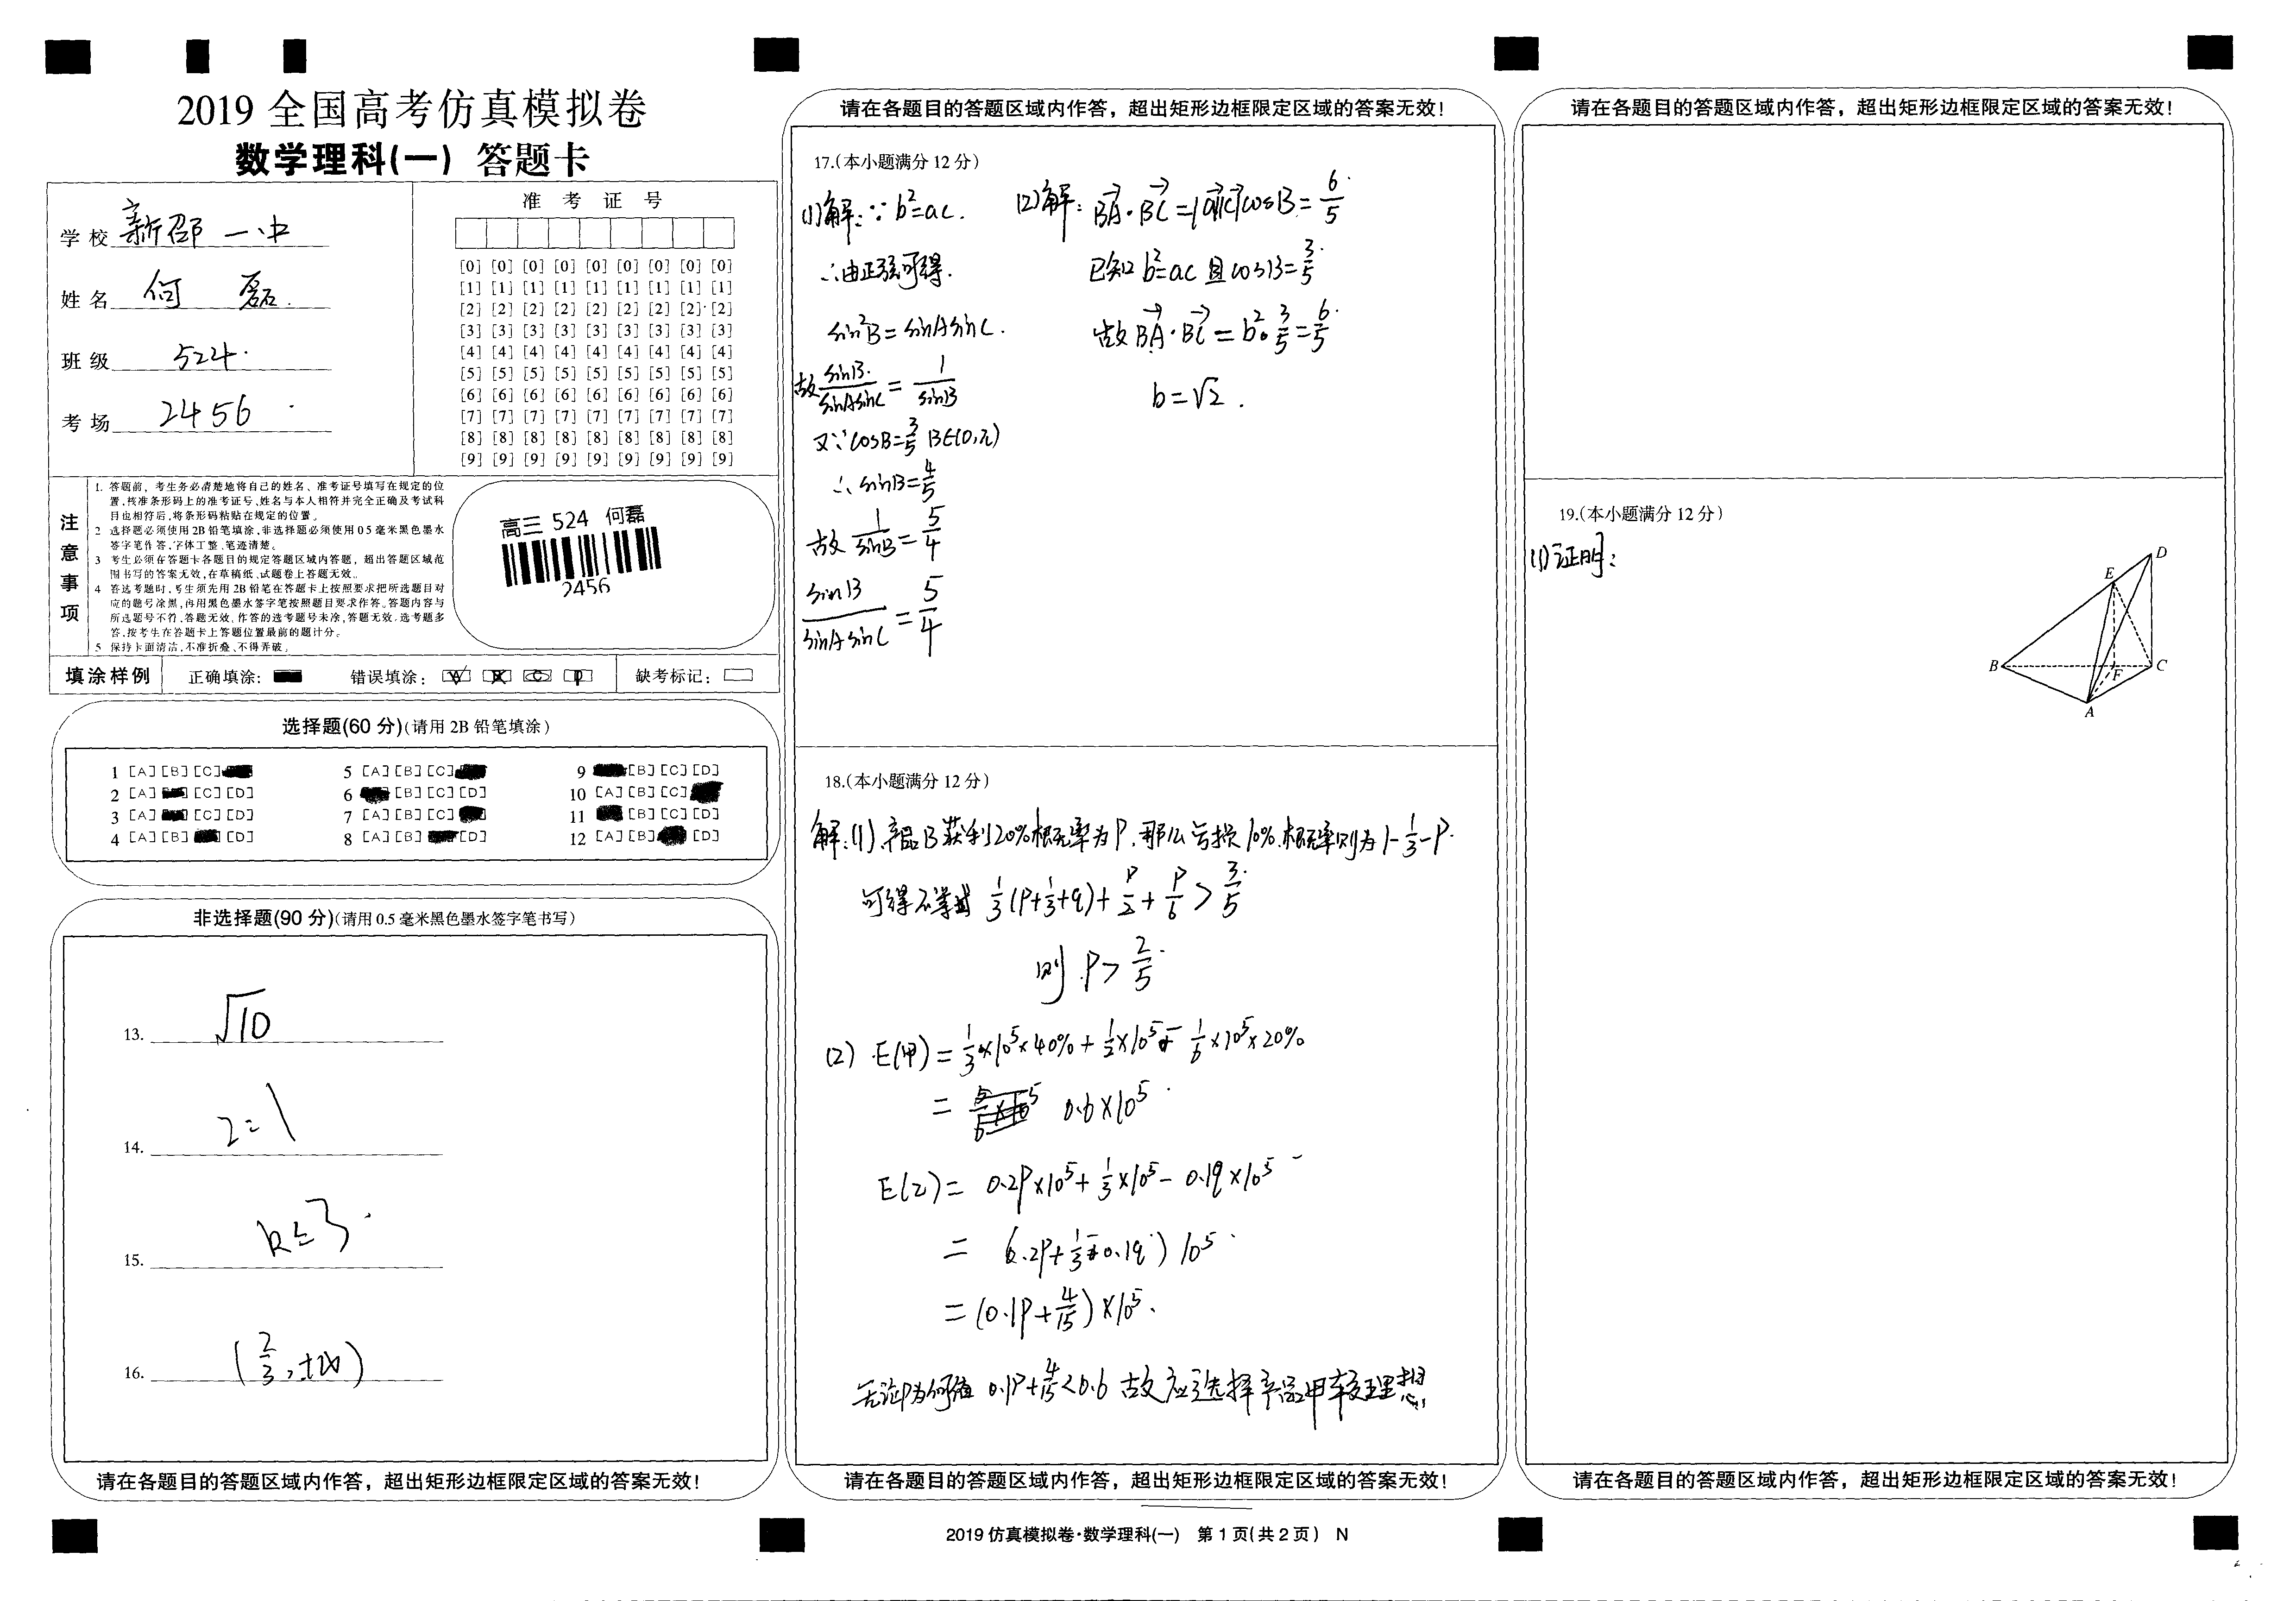 2019 全国高考仿真模拟卷
数学理科(一) 答题卡
学校 新邵一中
姓名 何磊.
班级 524.
考场 2456
准 考 证 号
[0] [0] [0] [0] [0] [0] [0] [0] [0]
[1] [1] [1] [1] [1] [1] [1] [1] [1]
[2] [2] [2] [2] [2] [2] [2] [2] [2]
[3] [3] [3] [3] [3] [3] [3] [3] [3]
[4] [4] [4] [4] [4] [4] [4] [4] [4]
[5] [5] [5] [5] [5] [5] [5] [5] [5]
[6] [6] [6] [6] [6] [6] [6] [6] [6]
[7] [7] [7] [7] [7] [7] [7] [7] [7]
[8] [8] [8] [8] [8] [8] [8] [8] [8]
[9] [9] [9] [9] [9] [9] [9] [9] [9]
注意事项
1. 答题前，考生务必清楚地将自己的姓名、准考证号填写在规定的位
置,核准条形码上的准考证号、姓名与本人相符并完全正确及考试科
目也相符后,将条形码粘贴在规定的位置。
2 选择题必须使用2B铅笔填涂,非选择题必须使用0 5毫米黑色墨水
签字笔作答,字体工整、笔迹清楚。
3 考生必须在答题卡各题目的规定答题区域内答题，超出答题区域范
围书写的答案无效,在草稿纸、试题卷上答题无效。
4 答选考题时,考生须先用2B铅笔在答题卡上按照要求把所选题目对
应的题号涂黑,再用黑色墨水签字笔按照题目要求作答。答题内容与
所选题号不符,答题无效。作答的选考题号未涂,答题无效。选考题多
答,按考生在答题卡上答题位置最前的题计分。
5 保持卡面清洁,不准折叠、不得弄破。
高三 524 何磊
2456
填涂样例 正确填涂： 错误填涂： 缺考标记：
选择题(60 分)(请用 2B 铅笔填涂)
1 [A] [B] [C] 5 [A] [B] [C] 9 [B] [C] [D]
2 [A] [C] [D] 6 [B] [C] [D] 10 [A] [B] [C]
3 [A] [C] [D] 7 [A] [B] [C] 11 [B] [C] [D]
4 [A] [B] [D] 8 [A] [B] [D] 12 [A] [B] [D]
非选择题(90 分)(请用 0.5 毫米黑色墨水签字笔书写)
13. √10
14. 2=1
15. k≤3.
16. (2/3,+∞)
请在各题目的答题区域内作答，超出矩形边框限定区域的答案无效！
请在各题目的答题区域内作答，超出矩形边框限定区域的答案无效！
17.(本小题满分 12 分)
(1)解:∵b²=ac.
∴由正弦可得.
sin²B=sinAsinC.
故 sinB/sinAsinC = 1/sinB
又∵cosB=3/5 B∈(0,π)
∴sinB=4/5
故 1/sinB = 5/4
sinB/sinAsinC = 5/4
(2)解: BA·BC=|a||c|cosB=6/5
已知 b²=ac 且 cosB=3/5.
故 BA·BC=b²·3/5=6/5
b=√2.
18.(本小题满分 12 分)
解:(1).产品B获利20%概率为P.那么亏损10%.概率则为1-1/3-P.
可得不等式 1/3(P+1/3+q)+P/2+P/6>3/5
则.P>2/5.
(2) E(甲)=1/3×10⁵×40%+1/2×10⁵-1/6×10⁵×20%
= 0.6×10⁵
E(乙)= 0.2P×10⁵+1/3×10⁵-0.1q×10⁵
= (0.2P+1/3-0.1q)10⁵
=(0.1P+4/15)×10⁵.
无论P为何值 0.1P+4/15<0.6 故应选择产品甲较理想
请在各题目的答题区域内作答，超出矩形边框限定区域的答案无效！
2019 仿真模拟卷·数学理科(一) 第 1 页(共 2 页) N
请在各题目的答题区域内作答，超出矩形边框限定区域的答案无效！
19.(本小题满分 12 分)
(1)证明:
D
E
B
C
F
A
请在各题目的答题区域内作答，超出矩形边框限定区域的答案无效！